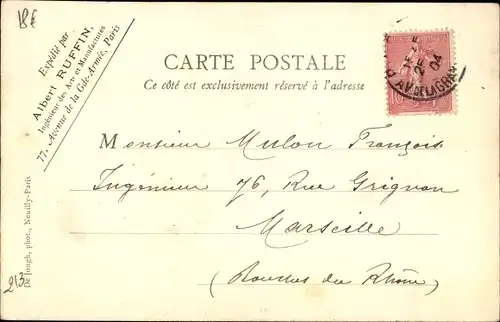 18€
Expédié par
Albert RUFFIN,
Ingénieur des Arts et Manufactures
77, Avenue de la Gde-Armée, Paris
CARTE POSTALE
Ce côté est exclusivement réservé à l'adresse
Monsieur Mulon François
Ingénieur 76, Rue Grignan
Marseille
(Bouches du Rhône)
De Jongh, phot., Neuilly-Paris
213
10
04
AV. DE LA GRA